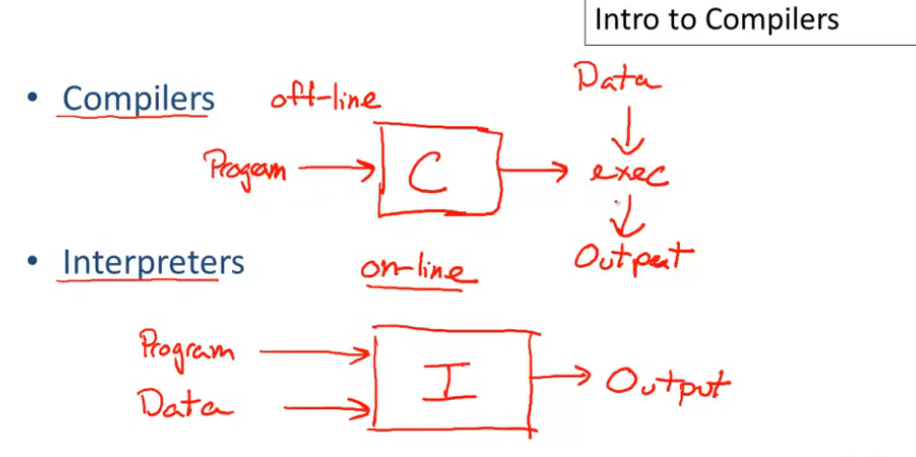 Intro to Compilers
• Compilers off-line
Data
Progam → C → exec
Output
• Interpreters on-line
Program
I → Output
Data